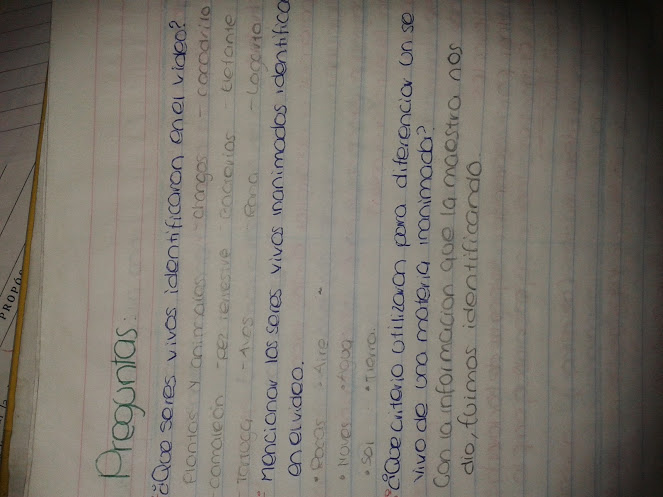 Preguntas:
¿Que seres vivos identificaron en el video?
Plantas y animales - changos - cocodrilo
camaleón - pez terrestre - bacterias - Elefante
Tortuga - Aves - Foca - Lagarto
Mencionar los seres vivos inanimados identifica
en el video.
• Rocas • Aire
• Nuves • Agua
• Sol • Tierra.
¿Que criterio utilizaron para diferenciar un se
vivo de una materia inanimada?
Con la informacion que la maestra nos
dio, fuimos identificando.
PROPÓS